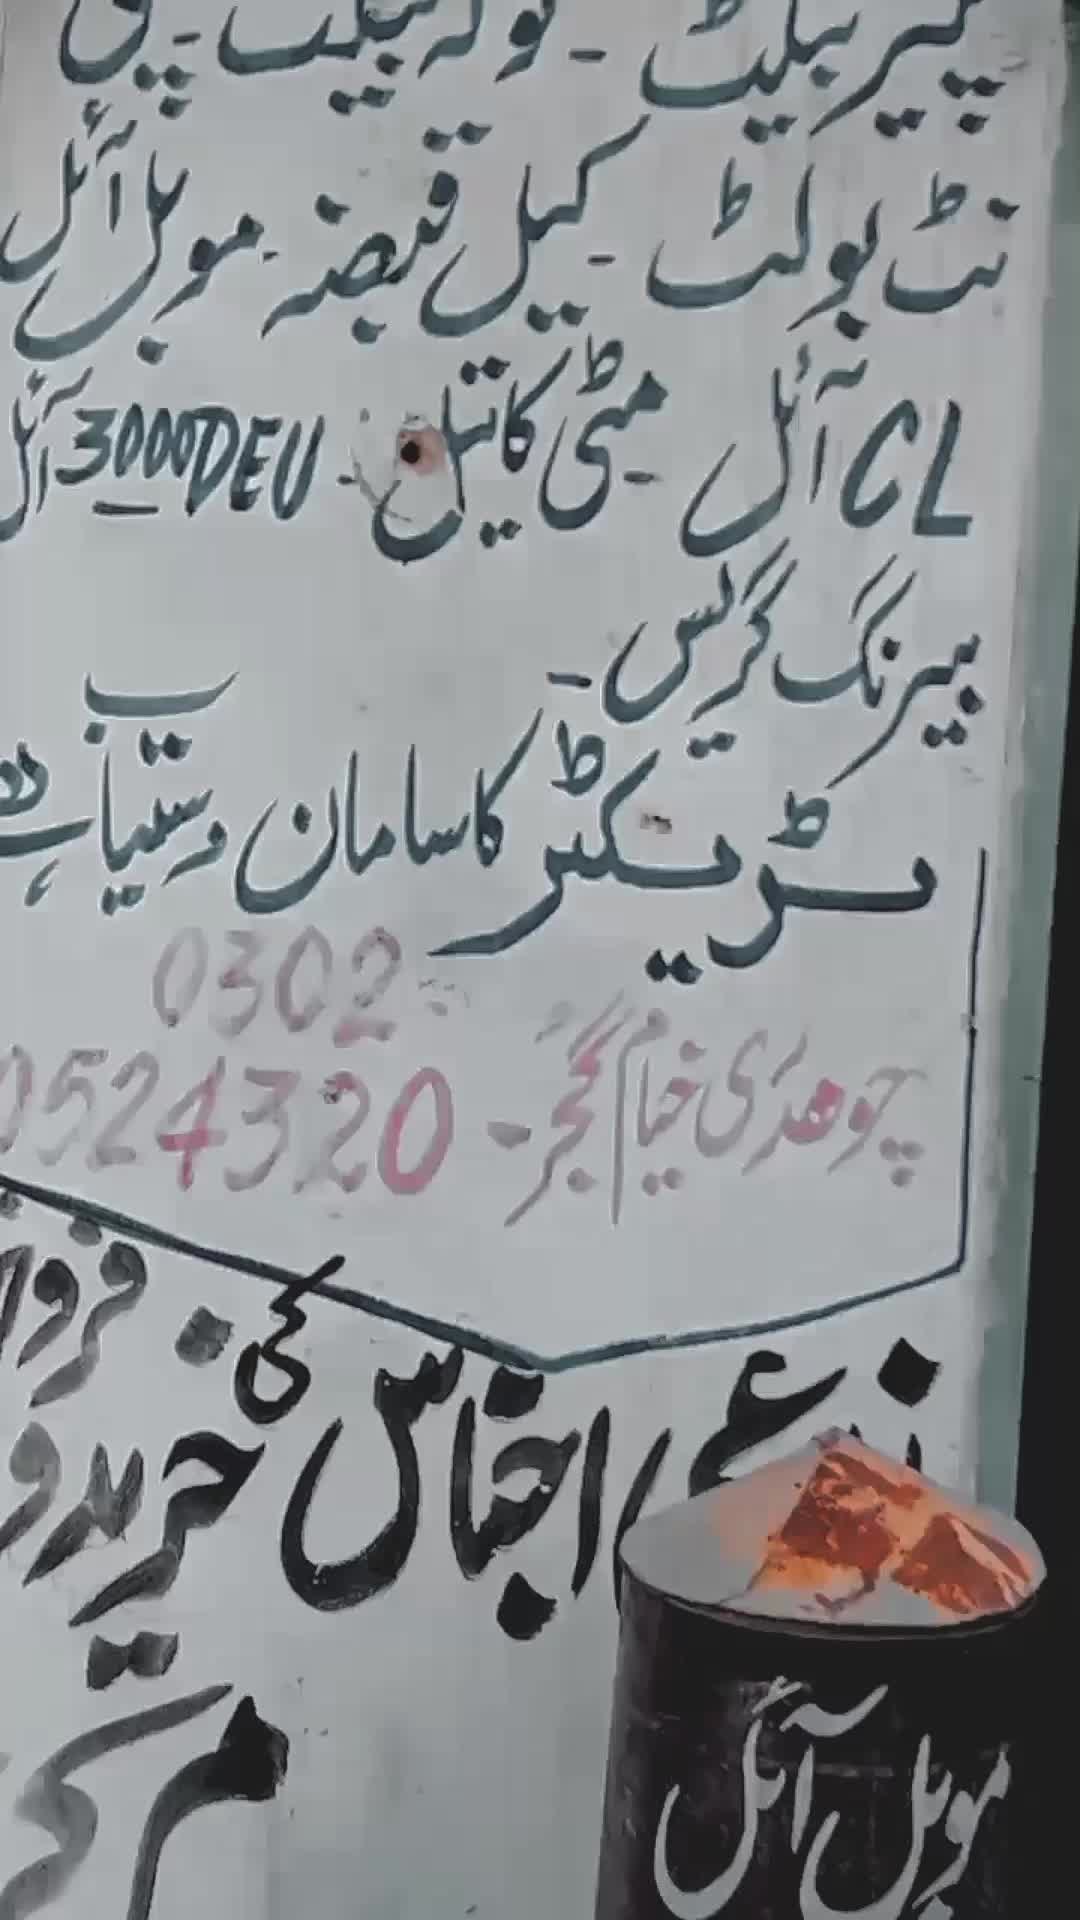 بیلٹ ۔ ٹوکہ بیلٹ ۔ پی
نٹ بولٹ ۔ کیل قبضہ ۔ موبل آئل
CL آئل ۔ مٹی کا تیل ۔ 3000DEU آئل
بیرنگ گریس ۔
ٹریکٹر کا سامان دستیاب ہے
0302
چوھدری خیام گجر ۔ 0524320
زرعی اجناس کی خرید و فرو
مر
موبل آئل